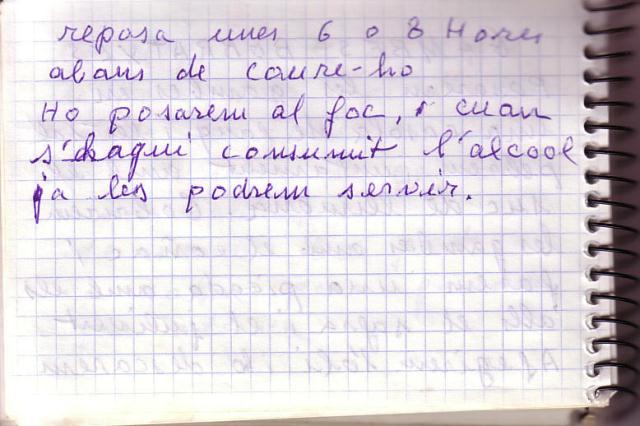 reposa unes 6 o 8 Hores
abans de coure-ho
Ho posarem al foc, i cuan
s'hagui consumit l'alcool
ja les podrem servir.